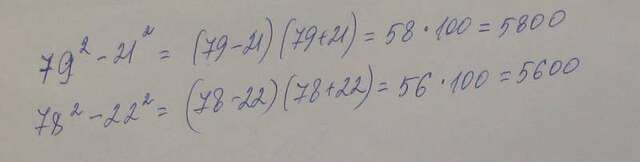 79² - 21² = (79-21)(79+21) = 58 · 100 = 5800
78² - 22² = (78-22)(78+22) = 56 · 100 = 5600